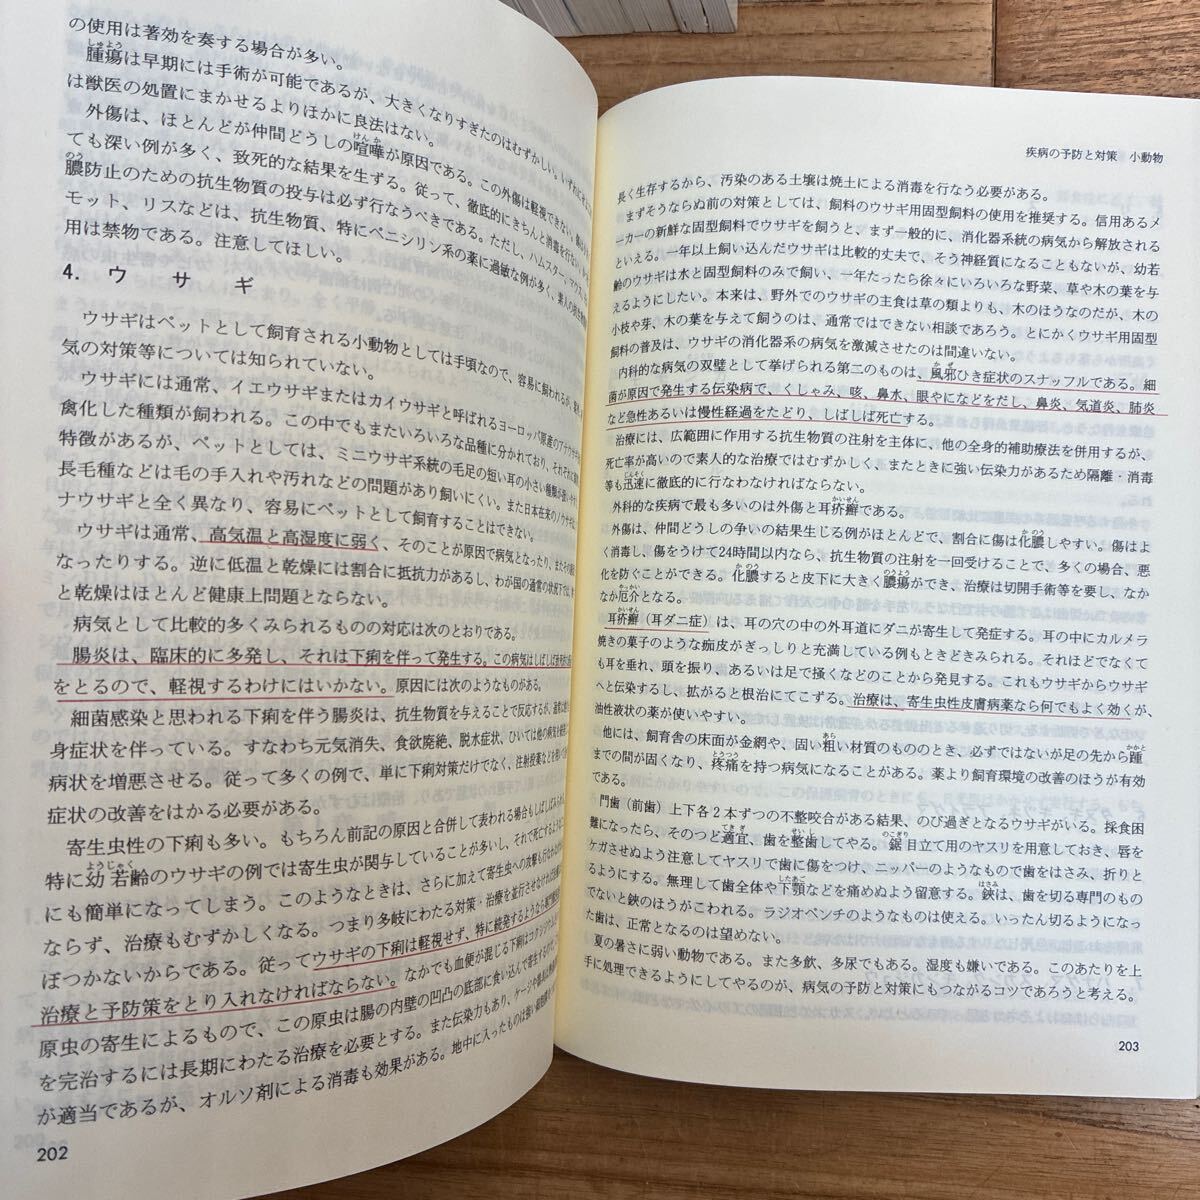 の使用は著効を奏する場合が多い。
腫瘍は早期には手術が可能であるが、大きくなりすぎたのはむずかしい。いずれにせよ
は獣医の処置にまかせるよりほかに良法はない。
外傷は、ほとんどが仲間どうしの喧嘩が原因である。この外傷は軽視できない。
ても深い例が多く、致死的な結果を生ずる。従って、徹底的にきちんと消毒を行ない
膿防止のための抗生物質の投与は必ず行なうべきである。ただし、ハムスター、マウス、
モット、リスなどは、抗生物質、特にペニシリン系の薬に過敏な例が多く、素人の
用は禁物である。注意してほしい。
4. ウサギ
ウサギはペットとして飼育される小動物としては手頃なので、容易に飼われるが、
気の対策等については知られていない。
ウサギには通常、イエウサギまたはカイウサギと呼ばれるヨーロッパ原産のアナウサギを
禽化した種類が飼われる。この中でもまたいろいろな品種に分かれており、それぞれに
特徴があるが、ペットとしては、ミニウサギ系統の毛足の短い耳の小さい種類が
長毛種などは毛の手入れや汚れなどの問題があり飼いにくい。また日本在来のノウサギは
ナウサギと全く異なり、容易にペットとして飼育することはできない。
ウサギは通常、高気温と高湿度に弱く、そのことが原因で病気となったり、またその
なったりする。逆に低温と乾燥には割合に抵抗力があるし、わが国の通常の状況下では、
と乾燥はほとんど健康上問題とならない。
病気として比較的多くみられるものの対応は次のとおりである。
腸炎は、臨床的に多発し、それは下痢を伴って発生する。この病気はしばしば
をとるので、軽視するわけにはいかない。原因には次のようなものがある。
細菌感染と思われる下痢を伴う腸炎は、抗生物質を与えることで反応するが、通常は
身症状を伴っている。すなわち元気消失、食欲廃絶、脱水症状、ひいては他の病気を
病状を増悪させる。従って多くの例で、単に下痢対策だけでなく、注射投薬などを用いて
症状の改善をはかる必要がある。
寄生虫性の下痢も多い。もちろん前記の原因と合併して表われる場合もしばしばみられ
特に幼若齢のウサギの例では寄生虫が関与していることが多いし、それで死亡するように
にも簡単になってしまう。このようなときは、さらに加えて寄生虫への攻撃も行なわなければ
ならず、治療もむずかしくなる。つまり多岐にわたる対策・治療を並行させなければ
ぼつかないからである。従ってウサギの下痢は軽視せず、特に続発するようなら専門的
治療と予防策をとり入れなければならない。なかでも血便が混じる下痢はコクシジウム
原虫の寄生によるもので、この原虫は腸の内壁の凹凸の底部に食い込んで寄生するので、
を完治するには長期にわたる治療を必要とする。また伝染力もあり、ケージや器具は
が適当であるが、オルソ剤による消毒も効果がある。地中に入ったものは強い
202
疾病の予防と対策 小動物
長く生存するから、汚染のある土壌は焼土による消毒を行なう必要がある。
まずそうならぬ前の対策としては、飼料のウサギ用固型飼料の使用を推奨する。信用あるメ
ーカーの新鮮な固型飼料でウサギを飼うと、まず一般的に、消化器系統の病気から解放される
といえる。一年以上飼い込んだウサギは比較的丈夫で、そう神経質になることもないが、幼若
齢のウサギは水と固型飼料のみで飼い、一年たったら徐々にいろいろな野菜、草や木の葉を与
えるようにしたい。本来は、野外でのウサギの主食は草の類よりも、木のほうなのだが、木の
小枝や芽、木の葉を与えて飼うのは、通常ではできない相談であろう。とにかくウサギ用固型
飼料の普及は、ウサギの消化器系の病気を激減させたのは間違いない。
内科的な病気の双璧として挙げられる第二のものは、風邪ひき症状のスナッフルである。細
菌が原因で発生する伝染病で、くしゃみ、咳、鼻水、眼やになどをだし、鼻炎、気道炎、肺炎
など急性あるいは慢性経過をたどり、しばしば死亡する。
治療には、広範囲に作用する抗生物質の注射を主体に、他の全身的補助療法を併用するが、
死亡率が高いので素人的な治療ではむずかしく、またときに強い伝染力があるため隔離・消毒
等も迅速に徹底的に行なわなければならない。
外科的な疾病で最も多いのは外傷と耳疥癬である。
外傷は、仲間どうしの争いの結果生じる例がほとんどで、割合に傷は化膿しやすい。傷はよ
く消毒し、傷をうけて24時間以内なら、抗生物質の注射を一回受けることで、多くの場合、悪
化を防ぐことができる。化膿すると皮下に大きく膿瘍ができ、治療は切開手術等を要し、なか
なか厄介となる。
耳疥癬（耳ダニ症）は、耳の穴の中の外耳道にダニが寄生して発症する。耳の中にカルメラ
焼きの菓子のような痂皮がぎっしりと充満している例もときどきみられる。それほどでなくて
も耳を垂れ、頭を振り、あるいは足で掻くなどのことから発見する。これもウサギからウサギ
へと伝染するし、拡がると根治にてこずる。治療は、寄生虫性皮膚病薬なら何でもよく効くが、
油性液状の薬が使いやすい。
他には、飼育舎の床面が金網や、固い粗い材質のもののとき、必ずではないが足の先から踵
までの間が固くなり、疼痛を持つ病気になることがある。薬より飼育環境の改善のほうが有効
である。
門歯（前歯）上下各2本ずつの不整咬合がある結果、のび過ぎとなるウサギがいる。採食困
難になったら、そのつど適宜、歯を整歯してやる。鋸目立て用のヤスリを用意しておき、唇を
ケガさせぬよう注意してヤスリで歯に傷をつけ、ニッパーのようなもので歯をはさみ、折りと
るようにする。無理して歯全体や下顎などを痛めぬよう留意する。鋏は、歯を切る専門のもの
でないと鋏のほうがこわれる。ラジオペンチのようなものは使える。いったん切るようになっ
た歯は、正常となるのは望めない。
夏の暑さに弱い動物である。また多飲、多尿でもある。湿度も嫌いである。このあたりを上
手に処理できるようにしてやるのが、病気の予防と対策にもつながるコツであろうと考える。
203